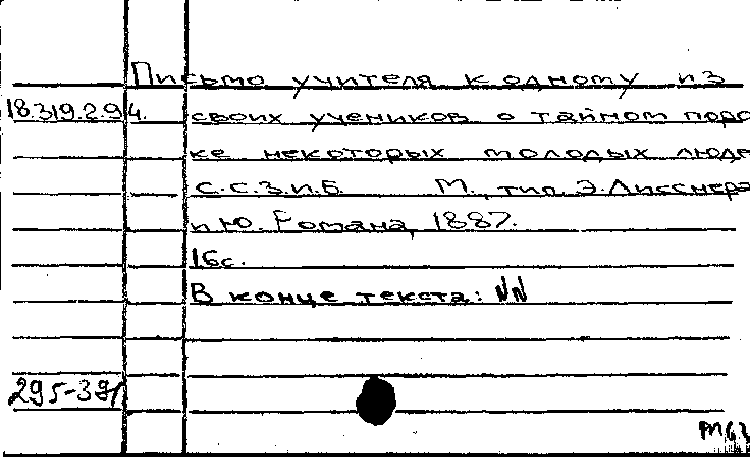 Письмо учителя к одному из
18.319.2.94. своих учеников о тайном поро
ке некоторых молодых люде
С.С.З.и.Б. М., тип. Э.Лисснера
и Ю. Романа, 1887.
16с.
В конце текста: NN
295-391